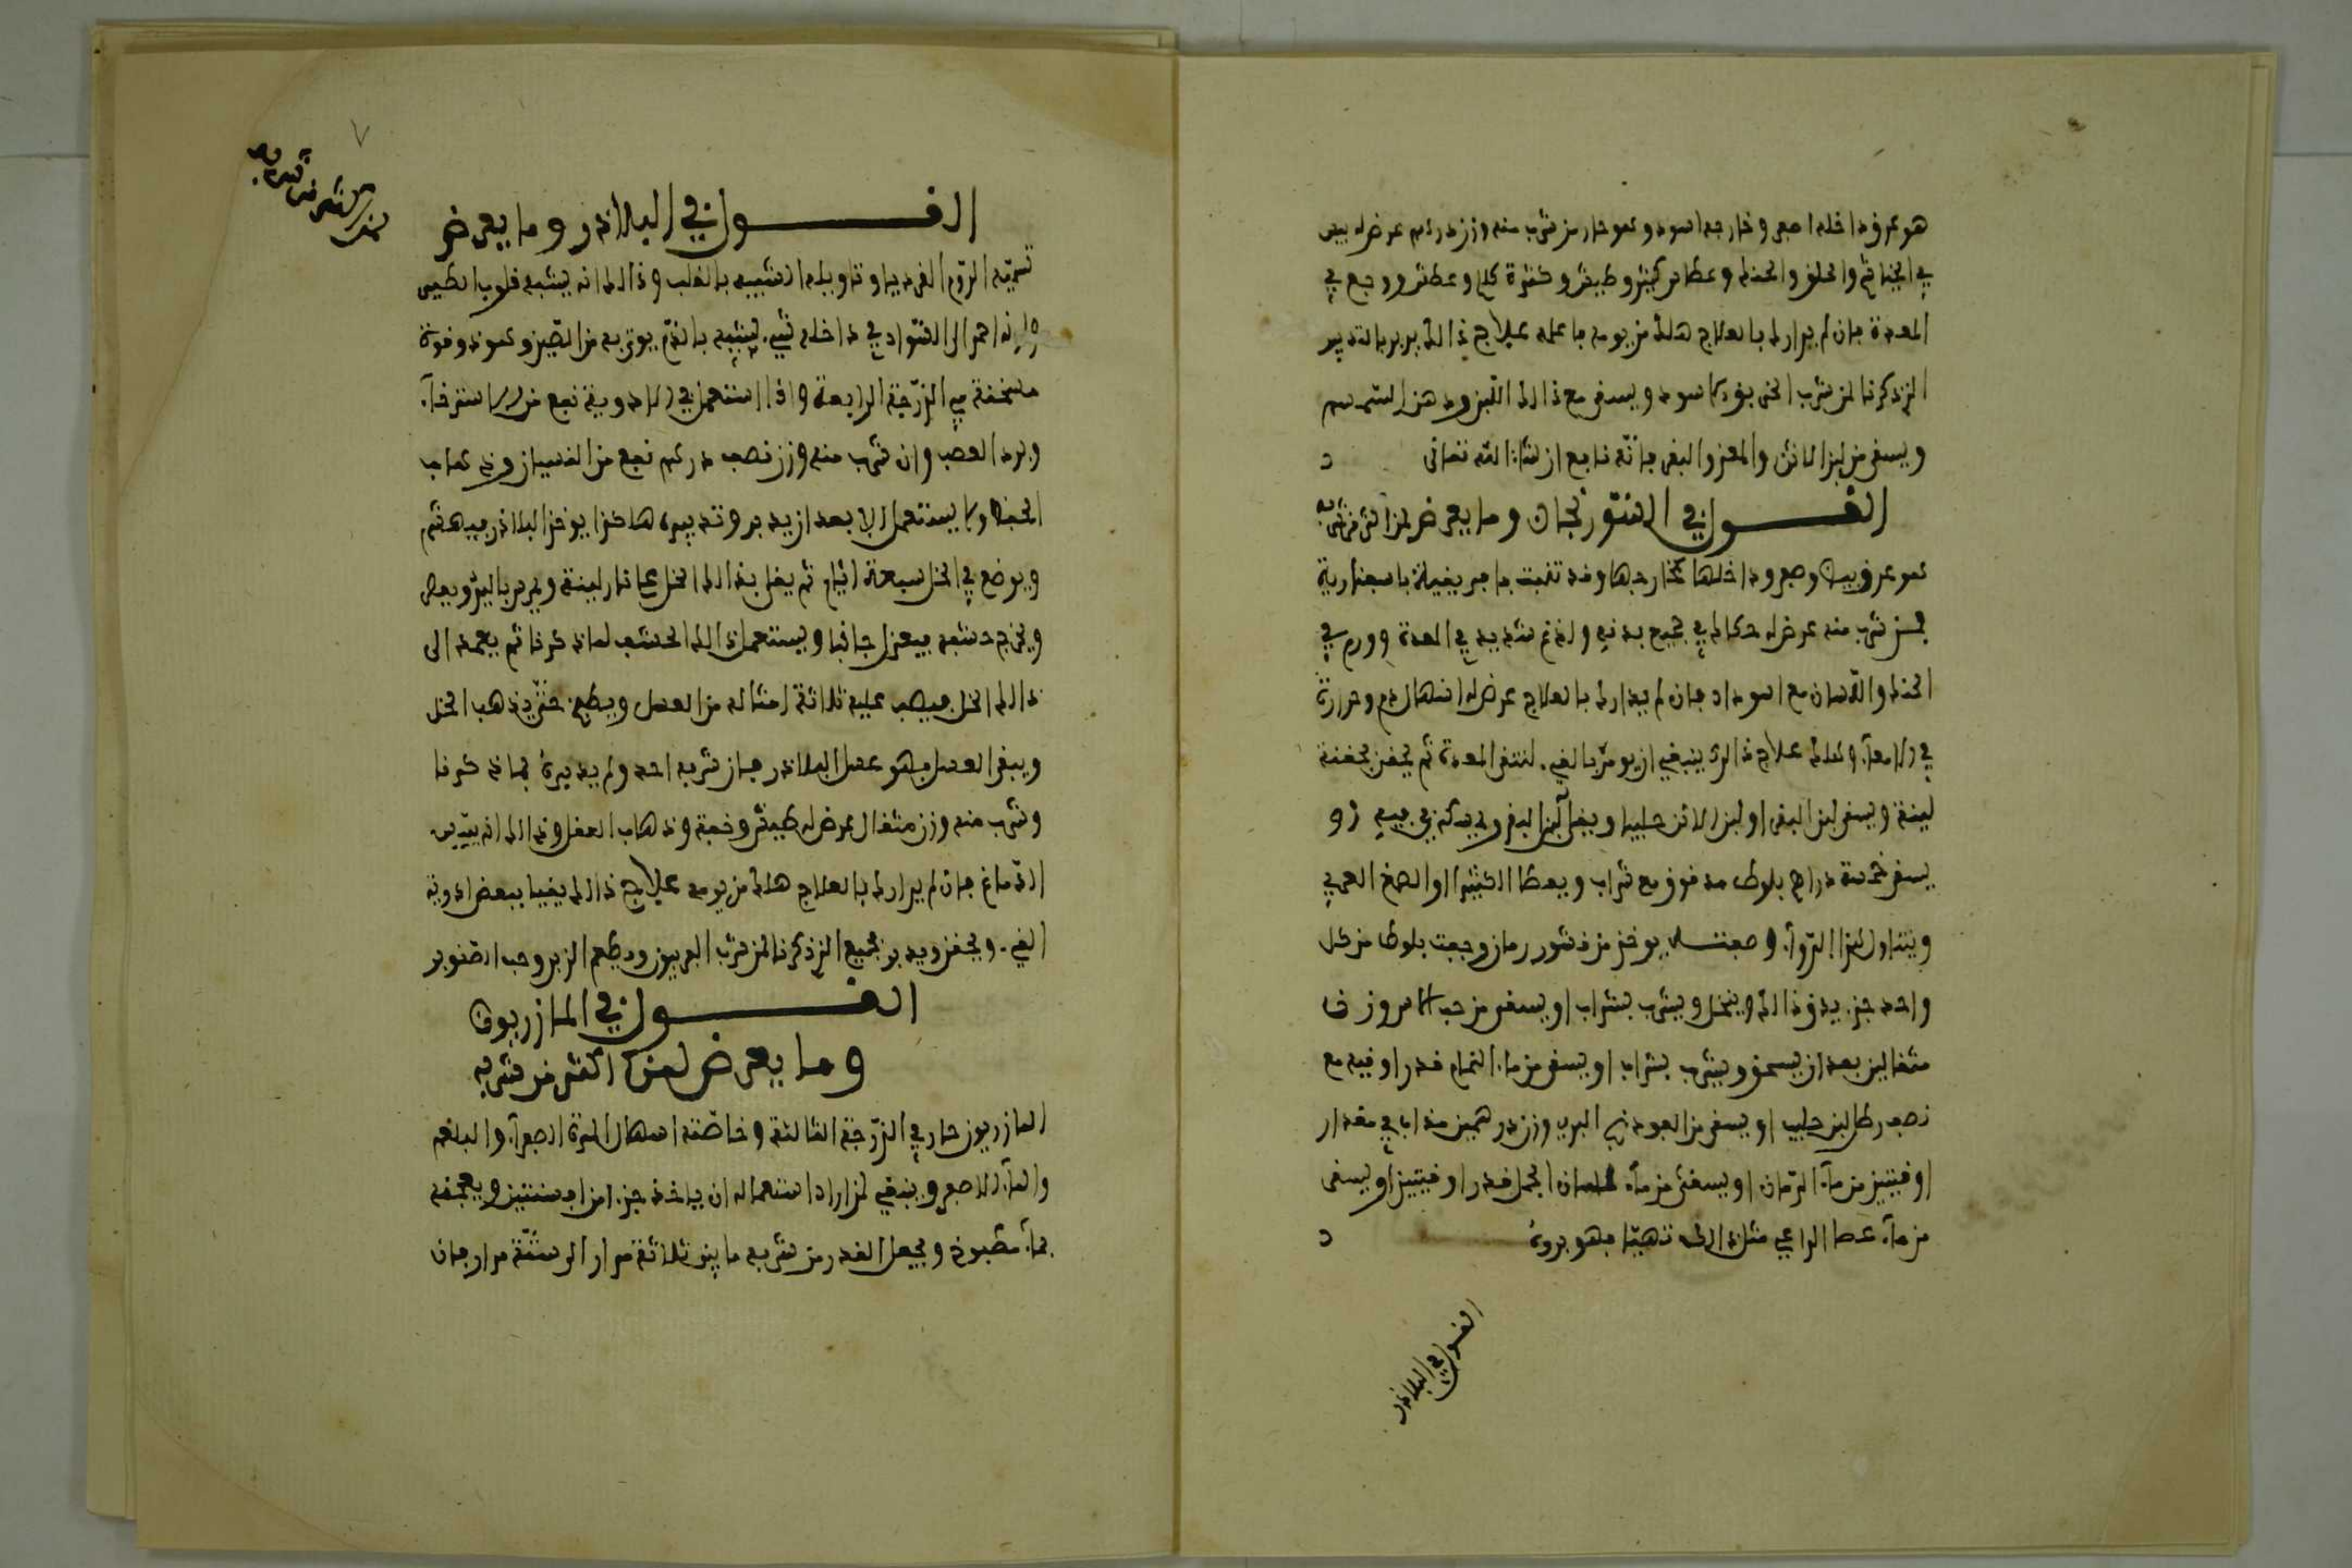 هو عروق داخله اصفر وخارجه اسود وهو حار من شرب منه وزن درهم عرض له يبس
في الخياشم والحلق والحنك وعطاس كثير وطيش وكثرة كلام وعطش ووجع في
المعدة فان لم يدارك بالعلاج هلك من يومه فاعلم علاج ذالك يدبر بالتدبير
الذي ذكرنا لمن شرب الخربق الاسود ويسقى مع ذالك اللبن ودهن السمسم
ويسقى من لبن الاتن والمعز والبقر فانه نافع ان شاء الله تعالى
القول في السورنجان وما يعرض لمن اكثر من شربه
هو عروق بيض وصفر وداخلها كخارجها وقد تنبت بافريقية باصفاربة
فمن شرب منه عرض له حكاك في جميع بدنه ولذع شديد في المعدة وورم في
الحنك واللسان مع اسوداد فان لم يدارك بالعلاج عرض له اسهال دم وحرارة
في الامعاء وهلك علاج ذالك ينبغي ان يومر بالقيء لتنقى المعدة ثم يحقن بحقنة
لينة ويسقى لبن البقر او لبن الاتن حليبا ويغلى لبن البقر ويمسكه في فيه او
يسقى خمسة دراهم بلوط مدقوق مع شراب ويعطا الكثيرا او الصمغ العربي
ويتناول هذا الدواء وصفته يوخذ من قشور رمان وجفت بلوط من كل
واحد جزء يدق ذالك وينخل ويشرب بشراب او يسقى من حب الاس وزن
مثقالين بعد ان يسحق ويشرب بشراب او يسقى من ماء النمام قدر اوقية مع
نصف رطل لبن حليب او يسقى من الفودنج البري وزن درهمين مذاب في مقدار
اوقيتين من ماء الرمان او يسقى من ماء لسان الحمل قدر اوقيتين او يسقى
من ماء عصا الراعي مثل ذالك تهيئا فهو بروه
القول في البلاذر
٧
القول في البلاذر وما يعرض
لمن اكثر من شربه
تسميه الروم القرديا وتاويله الشبيه بالقلب وذالك انه يشبه قلوب الطير
ولونه احمر الى السواد في داخله شيء شبيه بالدم يوتى به من الصين وهو ذو قوة
مسخنة في الدرجة الرابعة واذا استعمل في الادوية نفع من الاسترخاء
وبرد العصب وان شرب منه وزن نصف درهم نفع من النسيان وذهاب
الحفظ ولا يستعمل الا بعد ان يدبر وتدبيره هاكذا يوخذ البلاذر فيهشم
ويوضع في الخل سبعة ايام ثم يغلى بذالك الخل على نار لينة ويمرس باليد ويعصر
ويخرج حشفه فيعزل جانبا ويستعمل ذالك الحشف لما ذكرنا ثم يعمد الى
ذالك الخل فيصب عليه ثلاثة امثاله من العسل ويطبخ حتى يذهب الخل
ويبقى العسل فهو عسل البلاذر فان شربه احد ولم يدبره كما ذكرنا
وشرب منه وزن مثقال عرض له طيش وخفة وذهاب العقل وذالك انه ييبس
الدماغ فان لم يدارك بالعلاج هلك من يومه علاج ذالك يقيا ببعض ادوية
القيء ويحقن ويدبر بجميع الذي ذكرنا لمن شرب الفربيون ويطعم الزبد وحب الصنوبر
القول في المازريون
وما يعرض لمن اكثر من شربه
المازريون حار في الدرجة الثالثة وخاصته اسهال المرة الصفراء والبلغم
والماء الاصفر وينبغي لمن اراد استعماله ان ياخذ جزءا من افسنتين ويعجنه
بماء مطبوخ ويجعل القدر من شربه ما بين ثلاثة مرار الى ستة مرار فان